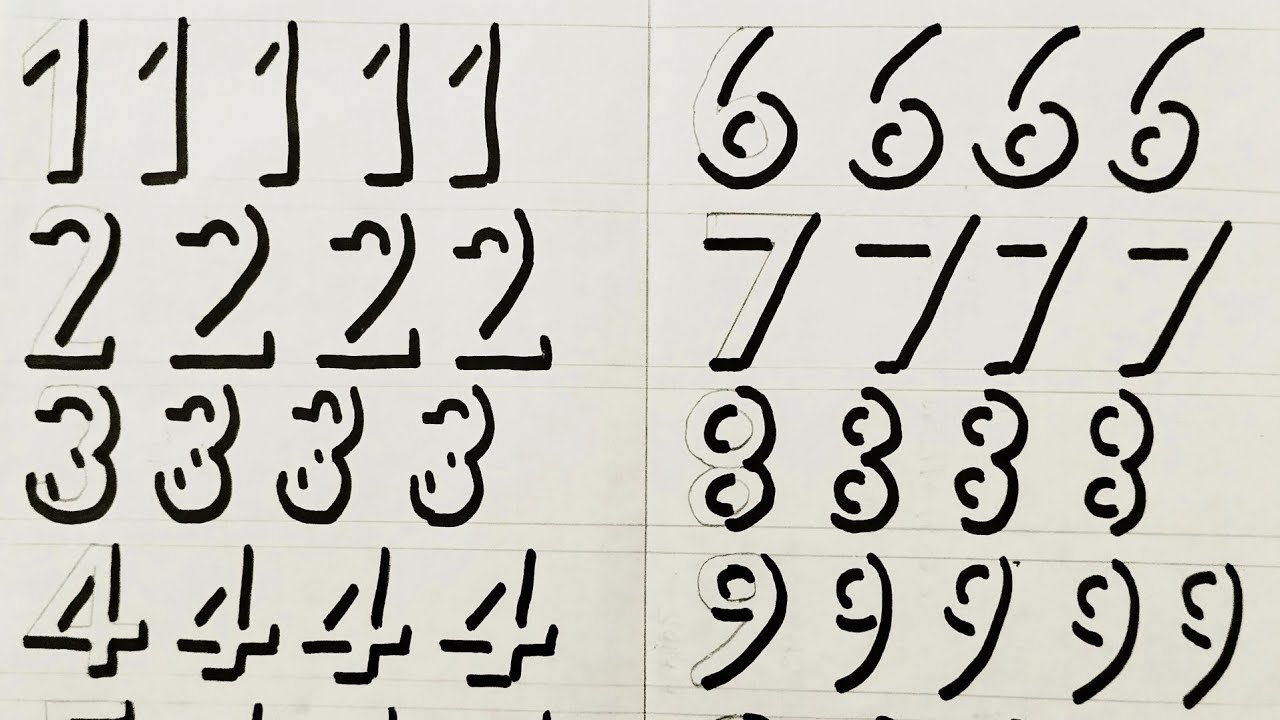 1 1 1 1 1
2 2 2 2
3 3 3 3
4 4 4 4
6 6 6 6
7 7 7 7
8 8 8 8
9 9 9 9 9